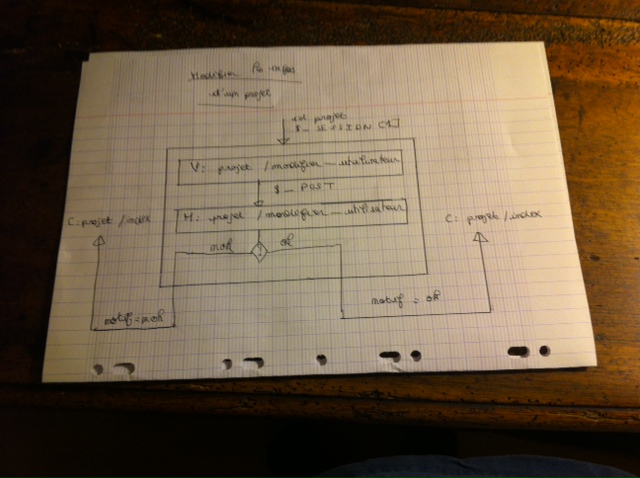 Modifier les infos
d'un projet
id projet
$_SESSION []
V: projet / modifier_utilisateur
$_POST
M: projet / modifier_utilisateur
C: projet / index
nok
ok
C: projet / index
notif = nok
notif = ok